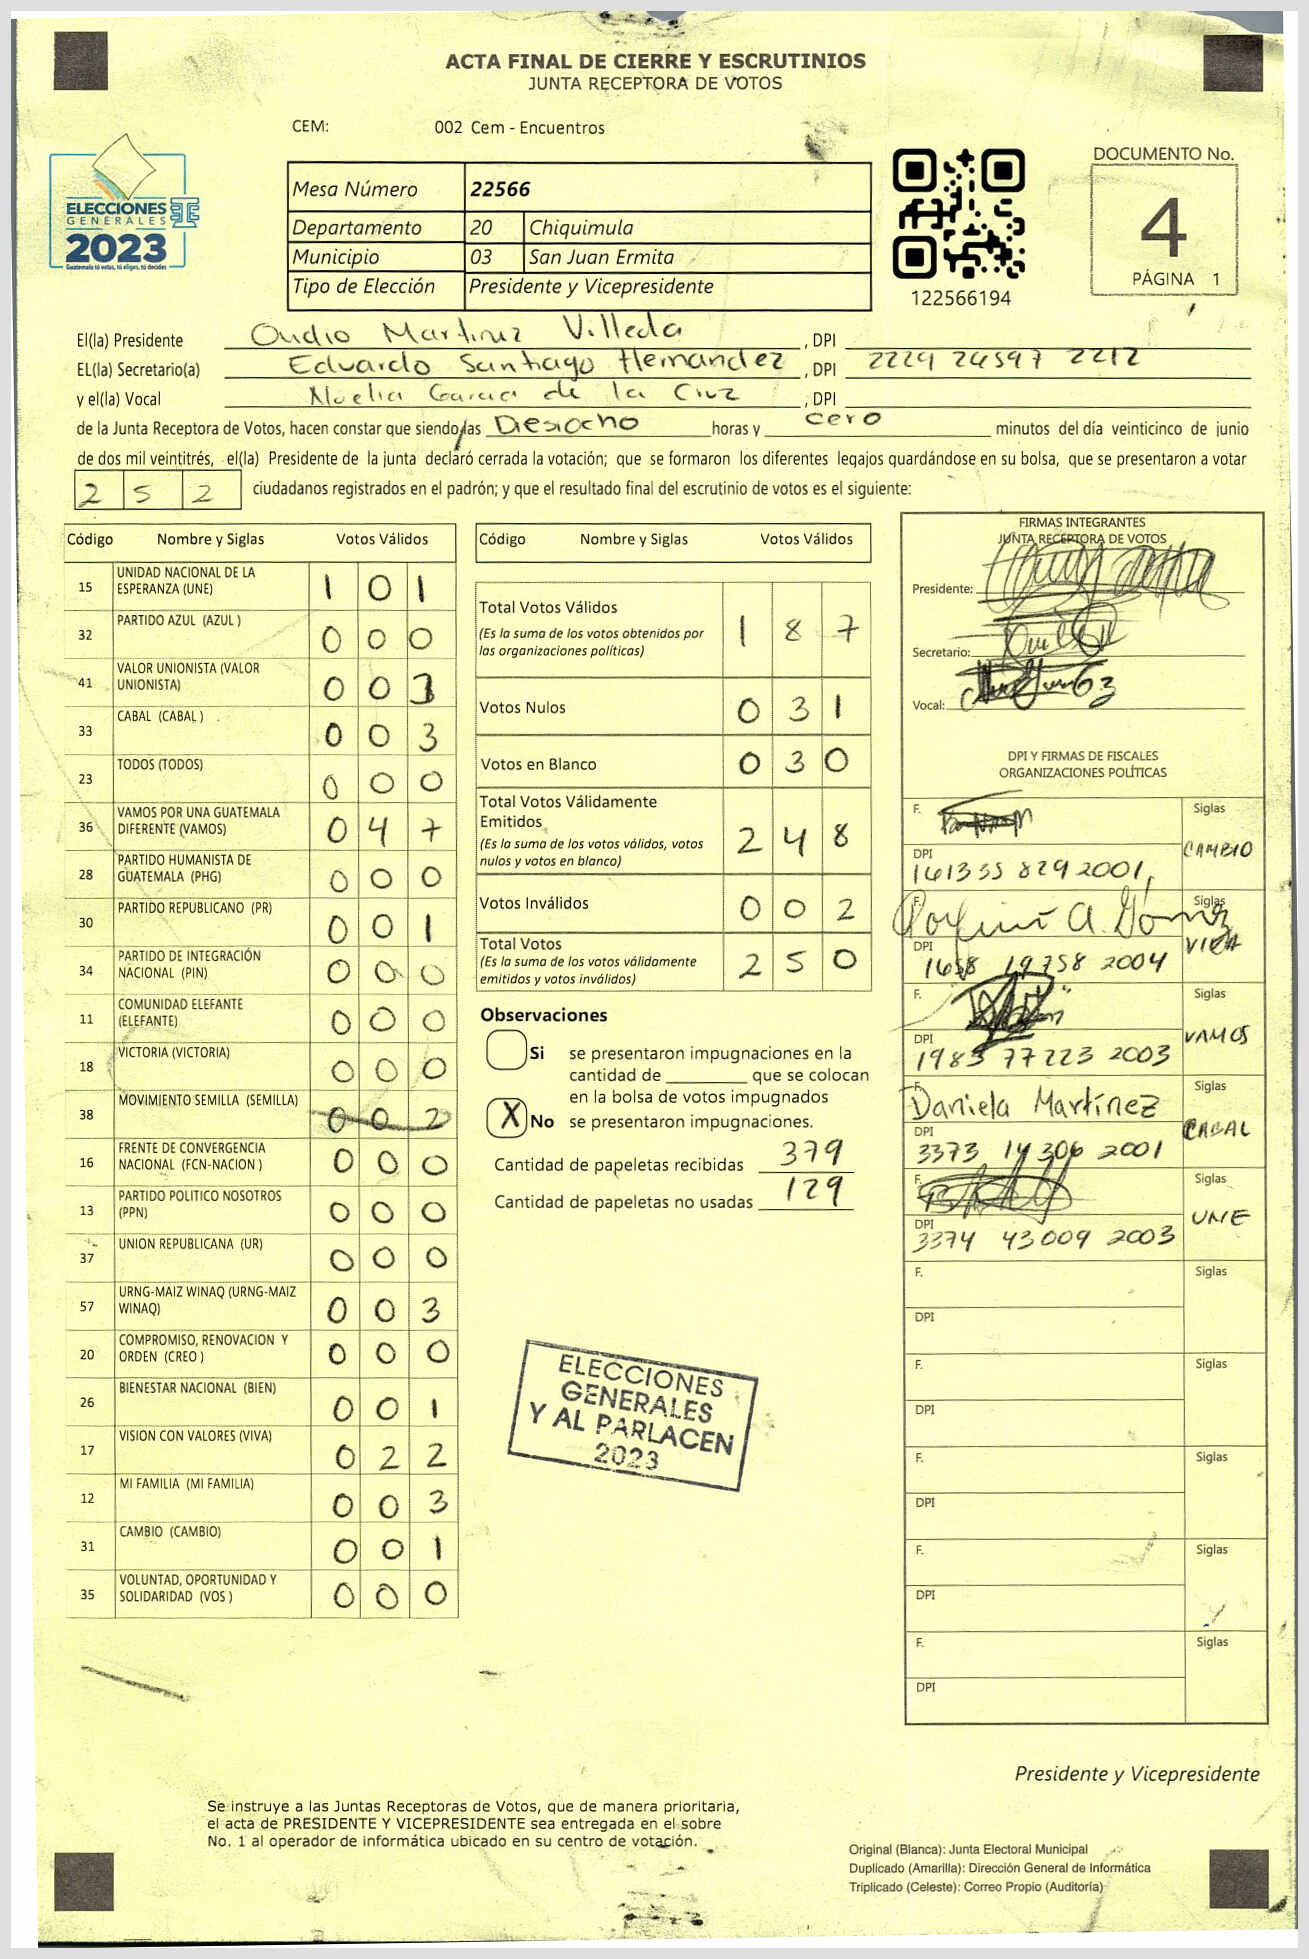 ACTA FINAL DE CIERRE Y ESCRUTINIOS
JUNTA RECEPTORA DE VOTOS
CEM: 002 Cem - Encuentros
ELECCIONES
GENERALES
2023
Guatemala tú votas, tú eliges, tú decides
Mesa Número 22566
Departamento 20 Chiquimula
Municipio 03 San Juan Ermita
Tipo de Elección Presidente y Vicepresidente
122566194
DOCUMENTO No.
4
PÁGINA 1
El(la) Presidente Ovidio Martinez Villeda, DPI
EL(la) Secretario(a) Eduardo Santiago Hernandez, DPI 2229 24597 2212
y el(la) Vocal Noelia Garcia de la Cruz, DPI
de la Junta Receptora de Votos, hacen constar que siendo las Desiocho horas y cero minutos del día veinticinco de junio
de dos mil veintitrés, el(la) Presidente de la junta declaró cerrada la votación; que se formaron los diferentes legajos quardándose en su bolsa, que se presentaron a votar
2 5 2 ciudadanos registrados en el padrón; y que el resultado final del escrutinio de votos es el siguiente:
Código Nombre y Siglas Votos Válidos
15 UNIDAD NACIONAL DE LA ESPERANZA (UNE) 1 0 1
32 PARTIDO AZUL (AZUL ) 0 0 0
41 VALOR UNIONISTA (VALOR UNIONISTA) 0 0 3
33 CABAL (CABAL ) 0 0 3
23 TODOS (TODOS) 0 0 0
36 VAMOS POR UNA GUATEMALA DIFERENTE (VAMOS) 0 4 7
28 PARTIDO HUMANISTA DE GUATEMALA (PHG) 0 0 0
30 PARTIDO REPUBLICANO (PR) 0 0 1
34 PARTIDO DE INTEGRACIÓN NACIONAL (PIN) 0 0 0
11 COMUNIDAD ELEFANTE (ELEFANTE) 0 0 0
18 VICTORIA (VICTORIA) 0 0 0
38 MOVIMIENTO SEMILLA (SEMILLA) 0 0 2
16 FRENTE DE CONVERGENCIA NACIONAL (FCN-NACION ) 0 0 0
13 PARTIDO POLITICO NOSOTROS (PPN) 0 0 0
37 UNION REPUBLICANA (UR) 0 0 0
57 URNG-MAIZ WINAQ (URNG-MAIZ WINAQ) 0 0 3
20 COMPROMISO, RENOVACION Y ORDEN (CREO ) 0 0 0
26 BIENESTAR NACIONAL (BIEN) 0 0 1
17 VISION CON VALORES (VIVA) 0 2 2
12 MI FAMILIA (MI FAMILIA) 0 0 3
31 CAMBIO (CAMBIO) 0 0 1
35 VOLUNTAD, OPORTUNIDAD Y SOLIDARIDAD (VOS ) 0 0 0
Código Nombre y Siglas Votos Válidos
Total Votos Válidos 1 8 7
(Es la suma de los votos obtenidos por
las organizaciones políticas)
Votos Nulos 0 3 1
Votos en Blanco 0 3 0
Total Votos Válidamente
Emitidos 2 4 8
(Es la suma de los votos válidos, votos
nulos y votos en blanco)
Votos Inválidos 0 0 2
Total Votos 2 5 0
(Es la suma de los votos válidamente
emitidos y votos inválidos)
Observaciones
Si se presentaron impugnaciones en la
cantidad de ________ que se colocan
en la bolsa de votos impugnados
X No se presentaron impugnaciones.
Cantidad de papeletas recibidas 379
Cantidad de papeletas no usadas 129
ELECCIONES
GENERALES
Y AL PARLACEN
2023
FIRMAS INTEGRANTES
JUNTA RECEPTORA DE VOTOS
Presidente:
Secretario:
Vocal:
DPI Y FIRMAS DE FISCALES
ORGANIZACIONES POLÍTICAS
F. Siglas CAMBIO
DPI 161335 829 2001
F. Porfirio A. Gómez Siglas VIVA
DPI 1658 19758 2004
F. Siglas VAMOS
DPI 1983 77223 2003
F. Daniela Martínez Siglas CABAL
DPI 3373 14306 2001
F. Siglas UNE
DPI 3374 43009 2003
F. Siglas
DPI
F. Siglas
DPI
F. Siglas
DPI
F. Siglas
DPI
F. Siglas
DPI
Presidente y Vicepresidente
Se instruye a las Juntas Receptoras de Votos, que de manera prioritaria,
el acta de PRESIDENTE Y VICEPRESIDENTE sea entregada en el sobre
No. 1 al operador de informática ubicado en su centro de votación.
Original (Blanca): Junta Electoral Municipal
Duplicado (Amarilla): Dirección General de Informática
Triplicado (Celeste): Correo Propio (Auditoría)